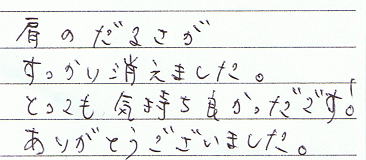 肩のだるさが
すっかり消えました。
とっても気持ち良かっだです!
ありがとうございました。